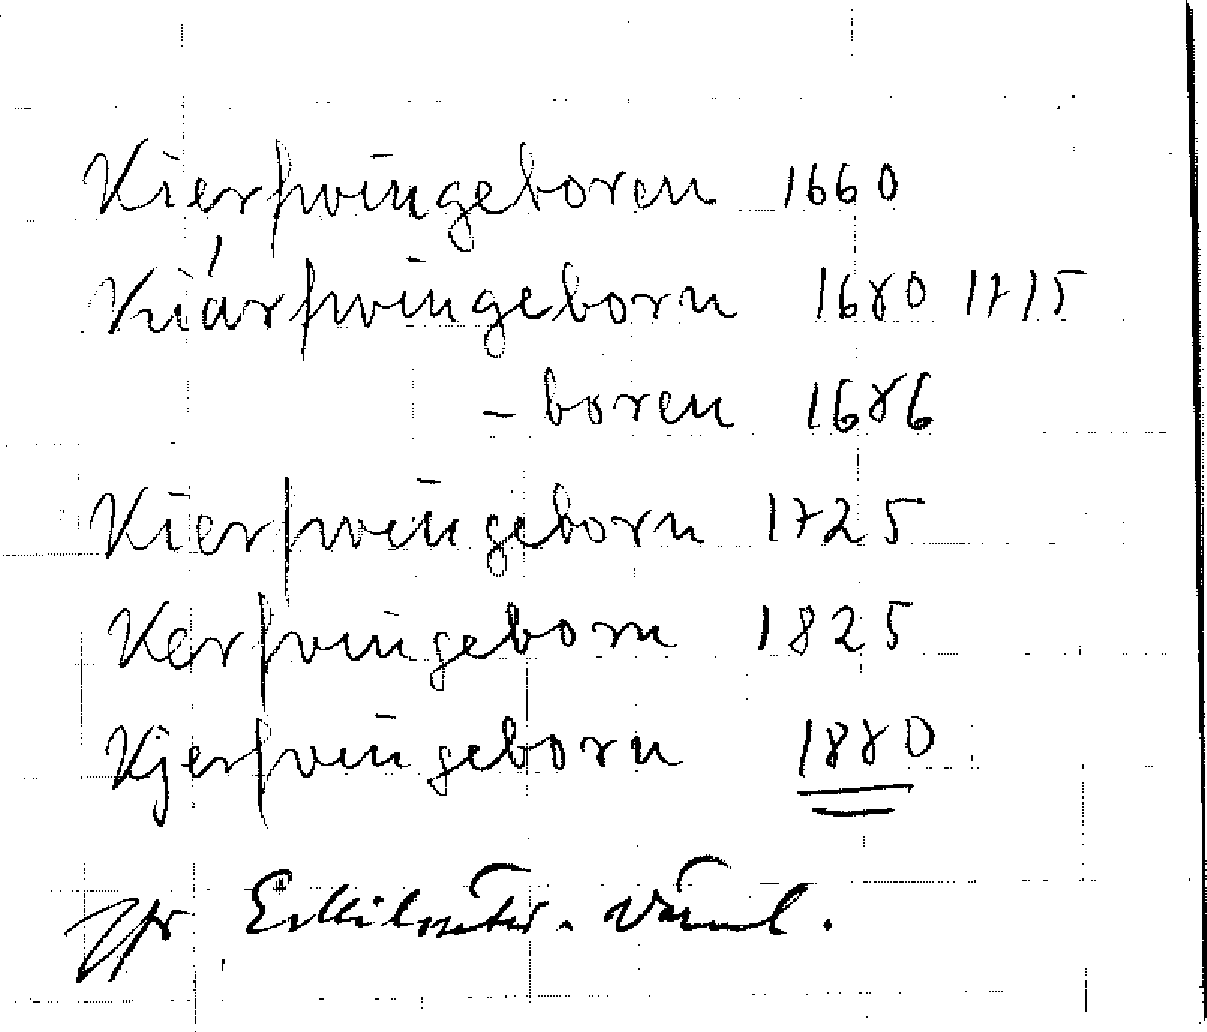 Kierpwingeboren 1660
Kiärpwingeborn 1680 1715
- boren 1686
Kierpwingeborn 1725
Kerpvingeborn 1825
Kjerpvingeborn 1880